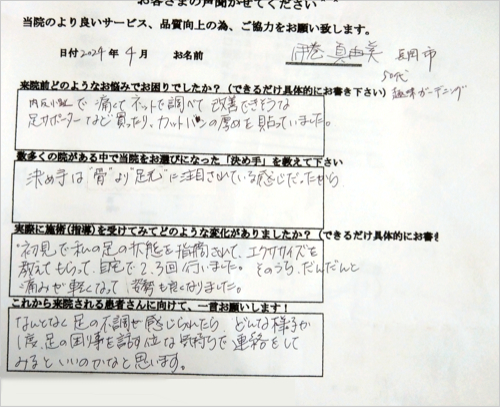 お客さまの声聞かせてください
当院のより良いサービス、品質向上の為、ご協力をお願い致します。
日付 2024 年 4 月 お名前 伊巻 真由美 長岡市
50代
来院前どのようなお悩みでお困りでしたか?(できるだけ具体的にお書き下さい) 趣味ガーデニング
内反小趾で痛くてネットで調べて改善できそうな
足サポーターなど買ったり、カットバンの厚めを貼っていました。
数多くの院がある中で当院をお選びになった「決め手」を教えて下さい
決め手は"骨"より"足元"に注目されている感じだったから
実際に施術(指導)を受けてみてどのような変化がありましたか?(できるだけ具体的にお書き
・初見で私の足の状態を指摘されて、エクササイズを
教えてもらって、自宅で2、3回行いました。そのうち、だんだんと
痛みが軽くなって、姿勢も良くなりました。
これから来院される患者さんに向けて、一言お願いします!
なんとなく足の不調を感じられたら、どんな様子か
1度、足の困り事を話す位な気持ちで連絡をして
みるといいのかなと思います。